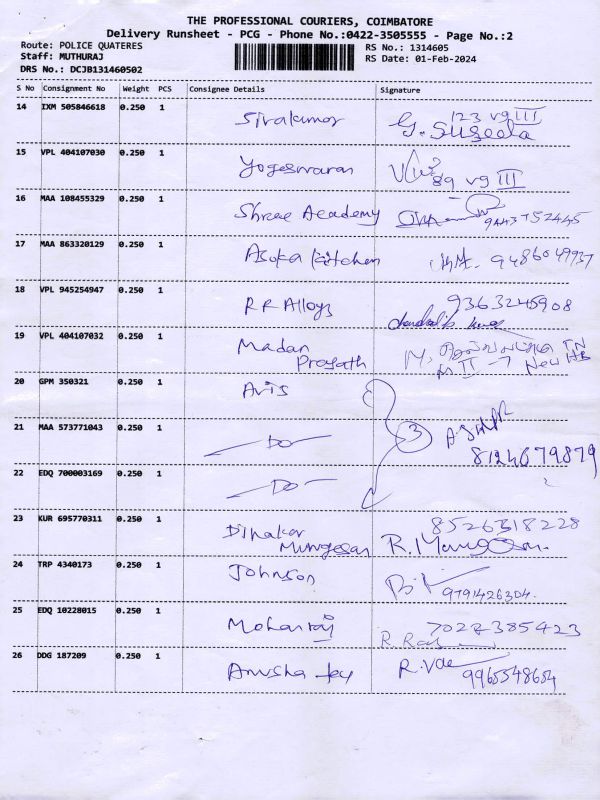 THE PROFESSIONAL COURIERS, COIMBATORE
Delivery Runsheet - PCG - Phone No.:0422-3505555 - Page No.:2
Route: POLICE QUATERES
Staff: MUTHURAJ
DRS No.: DCJB131460502
RS No.: 1314605
RS Date: 01-Feb-2024
S No Consignment No Weight PCS Consignee Details Signature
14 IXM 505846618 0.250 1 Sivakumar G. Suseela 123 vg III
15 VPL 404107030 0.250 1 Yogeswaran 89 vg III
16 MAA 108455329 0.250 1 Shree Academy
17 MAA 863320129 0.250 1 Asoka kitchen 9486049937
18 VPL 945254947 0.250 1 RR Alloys 9363245908
19 VPL 404107032 0.250 1 Madan Prasath M. III -7 New HB
20 GPM 350321 0.250 1 Avis
21 MAA 573771043 0.250 1 -Do- 3 8124679879
22 EDQ 700003169 0.250 1 -Do-
23 KUR 695770311 0.250 1 Dinakar Murugesan 8526318228 R.
24 TRP 4340173 0.250 1 Johnson 9791426304.
25 EDQ 10228015 0.250 1 Mohanraj 7022385423
26 DDG 187209 0.250 1 Anusha Jey 9965548654